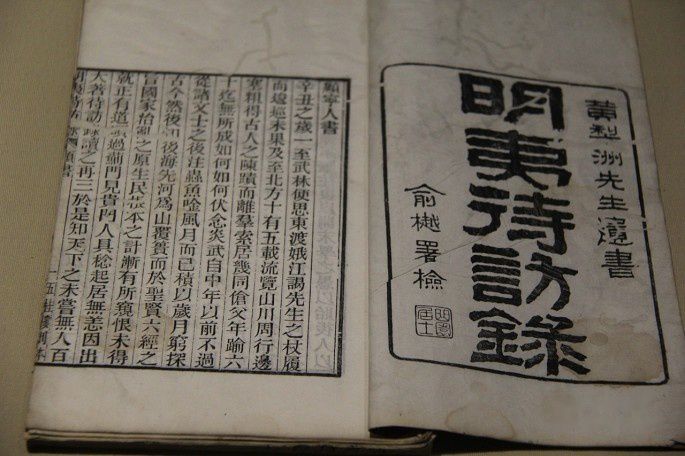 黃梨洲先生遺書
明夷待訪錄
俞樾署檢
顧寧人書
辛丑之歲一至武林便思東渡娥江謁先生之杖履
而逡巡未果及至北方十有五載流覽山川周行邊
塞粗得古人之陳蹟而離羣索居幾同傖父年踰六
十迄無所成如何如何伏念炎武自中年以前不過
從諸文士之後注蟲魚吟風月而已積以歲月窮探
古今然後知後海先河爲山覆簣而於聖賢六經之
旨國家治亂之原生民根本之計漸有所窺恨未得
就正有道頃過薊門見貴門人具稔起居無恙因出
大著待訪錄讀之再三於是知天下之未嘗無人百